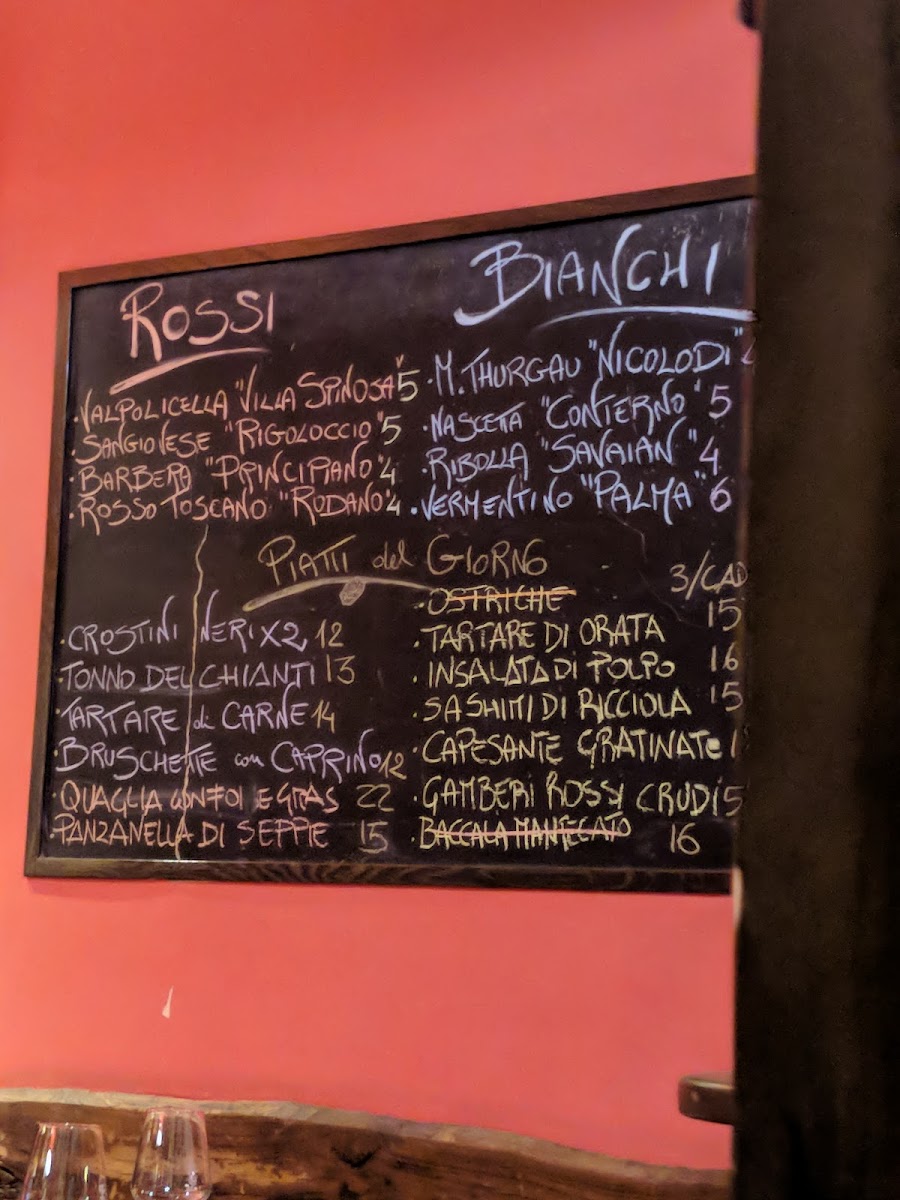 ROSSI
· VALPOLICELLA "VILLA SPINOSA" 5
· SANGIOVESE "RIGOLOCCIO" 5
· BARBERA "PRINCIPIANO" 4
· ROSSO TOSCANO "RODANO" 4
BIANCHI
· M. THURGAU "NICOLODI" 4
· NASCETA "CONTERNO" 5
· RIBOLLA "SAVAIAN" 4
· VERMENTINO "PALMA" 6
PIATTI del GIORNO
· CROSTINI NERI X2 12
· TONNO DEL CHIANTI 13
· TARTARE di CARNE 14
· BRUSCHETTE con CAPRINO 12
· QUAGLIA CON FOI E GRAS 22
· PANZANELLA DI SEPPIE 15
· OSTRICHE 3/CAD
· TARTARE DI ORATA 15
· INSALATA DI POLPO 16
· SASHIMI DI RICCIOLA 15
· CAPESANTE GRATINATE
· GAMBERI ROSSI CRUDI
· BACCALA MANTECATO 16